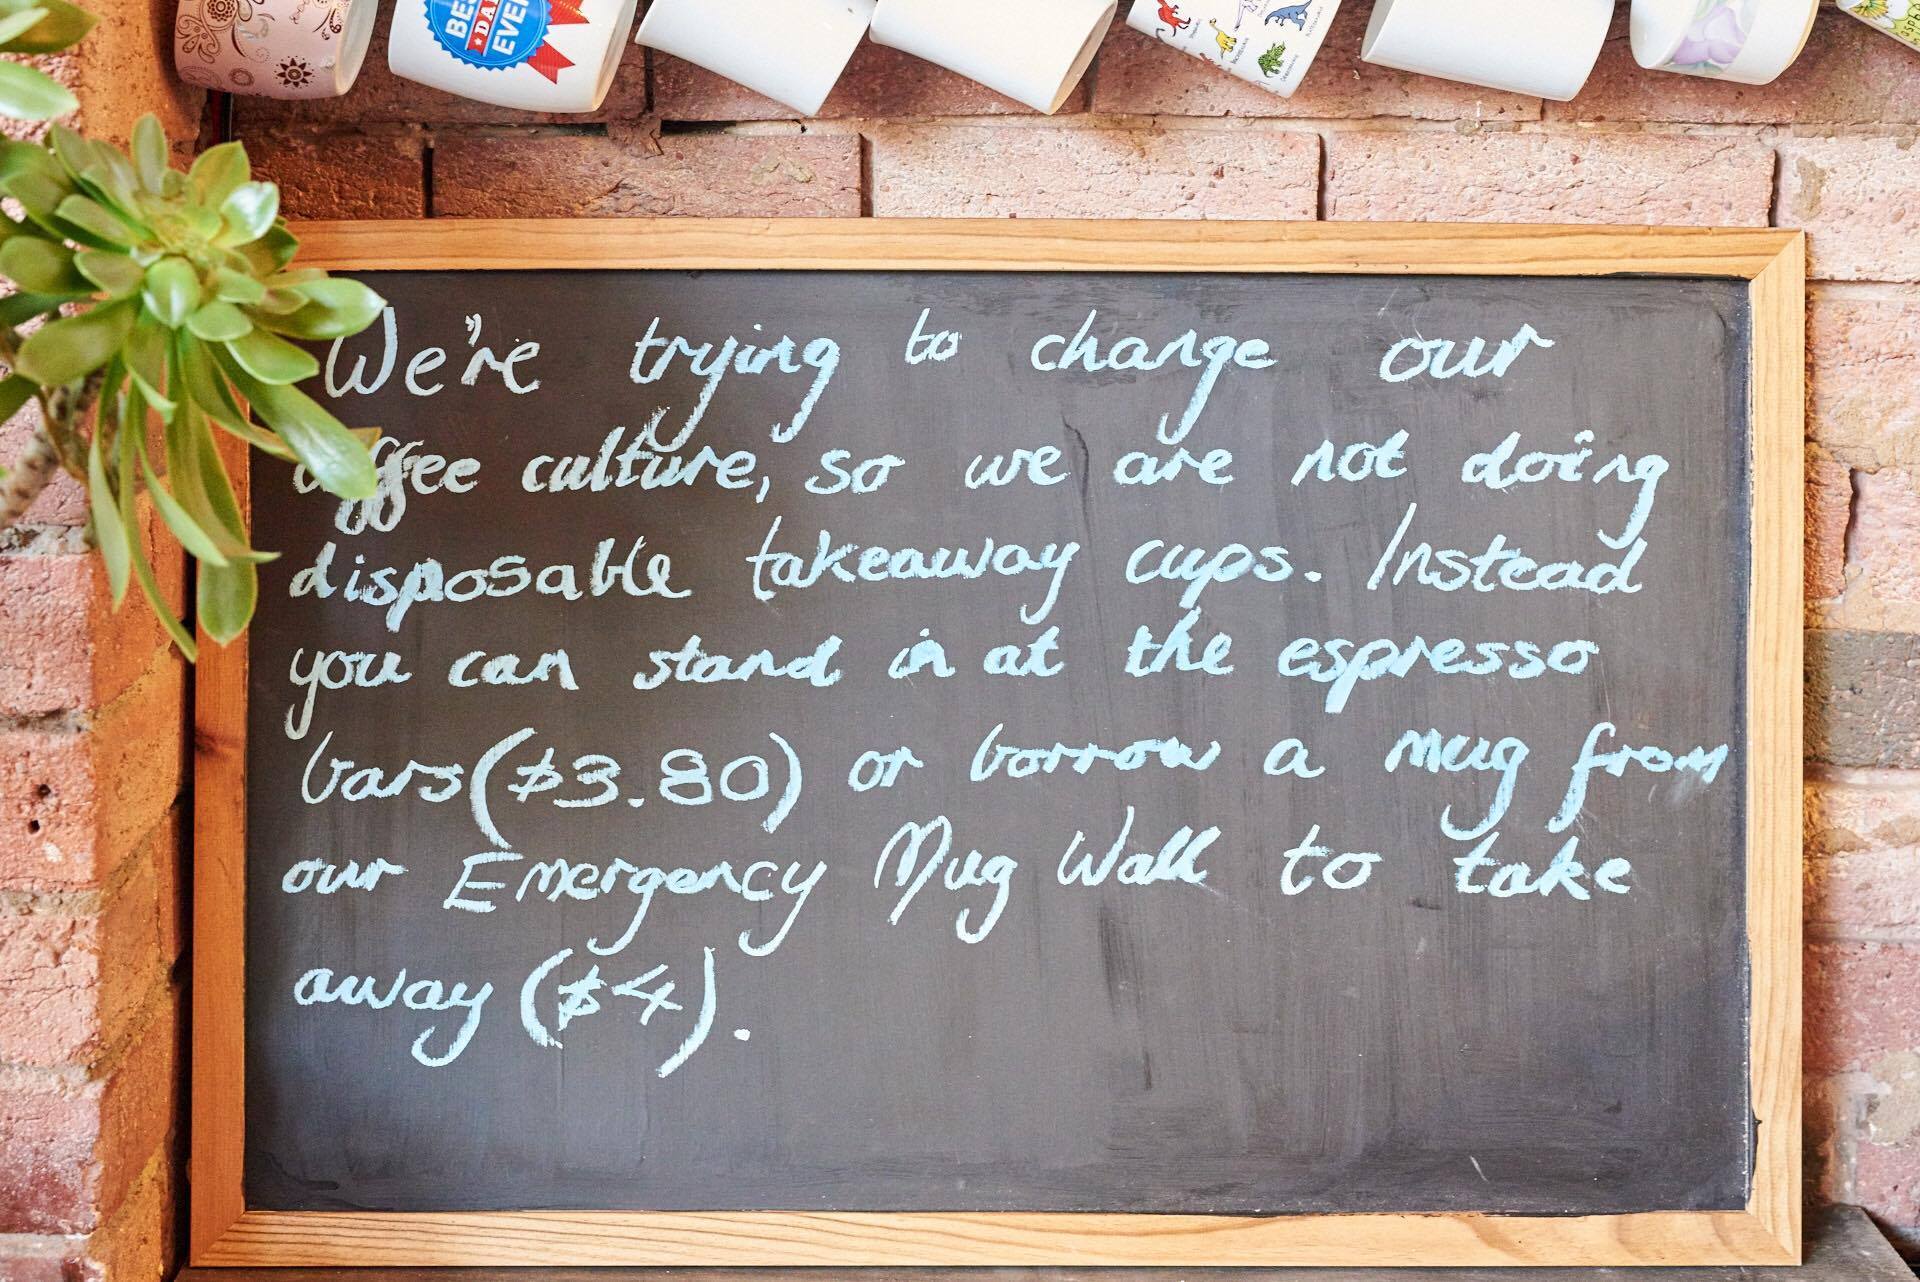 BEST
DAD
EVER
We're trying to change our
coffee culture, so we are not doing
disposable takeaway cups. Instead
you can stand in at the espresso
bars ($3.80) or borrow a mug from
our Emergency Mug Wall to take
away ($4).